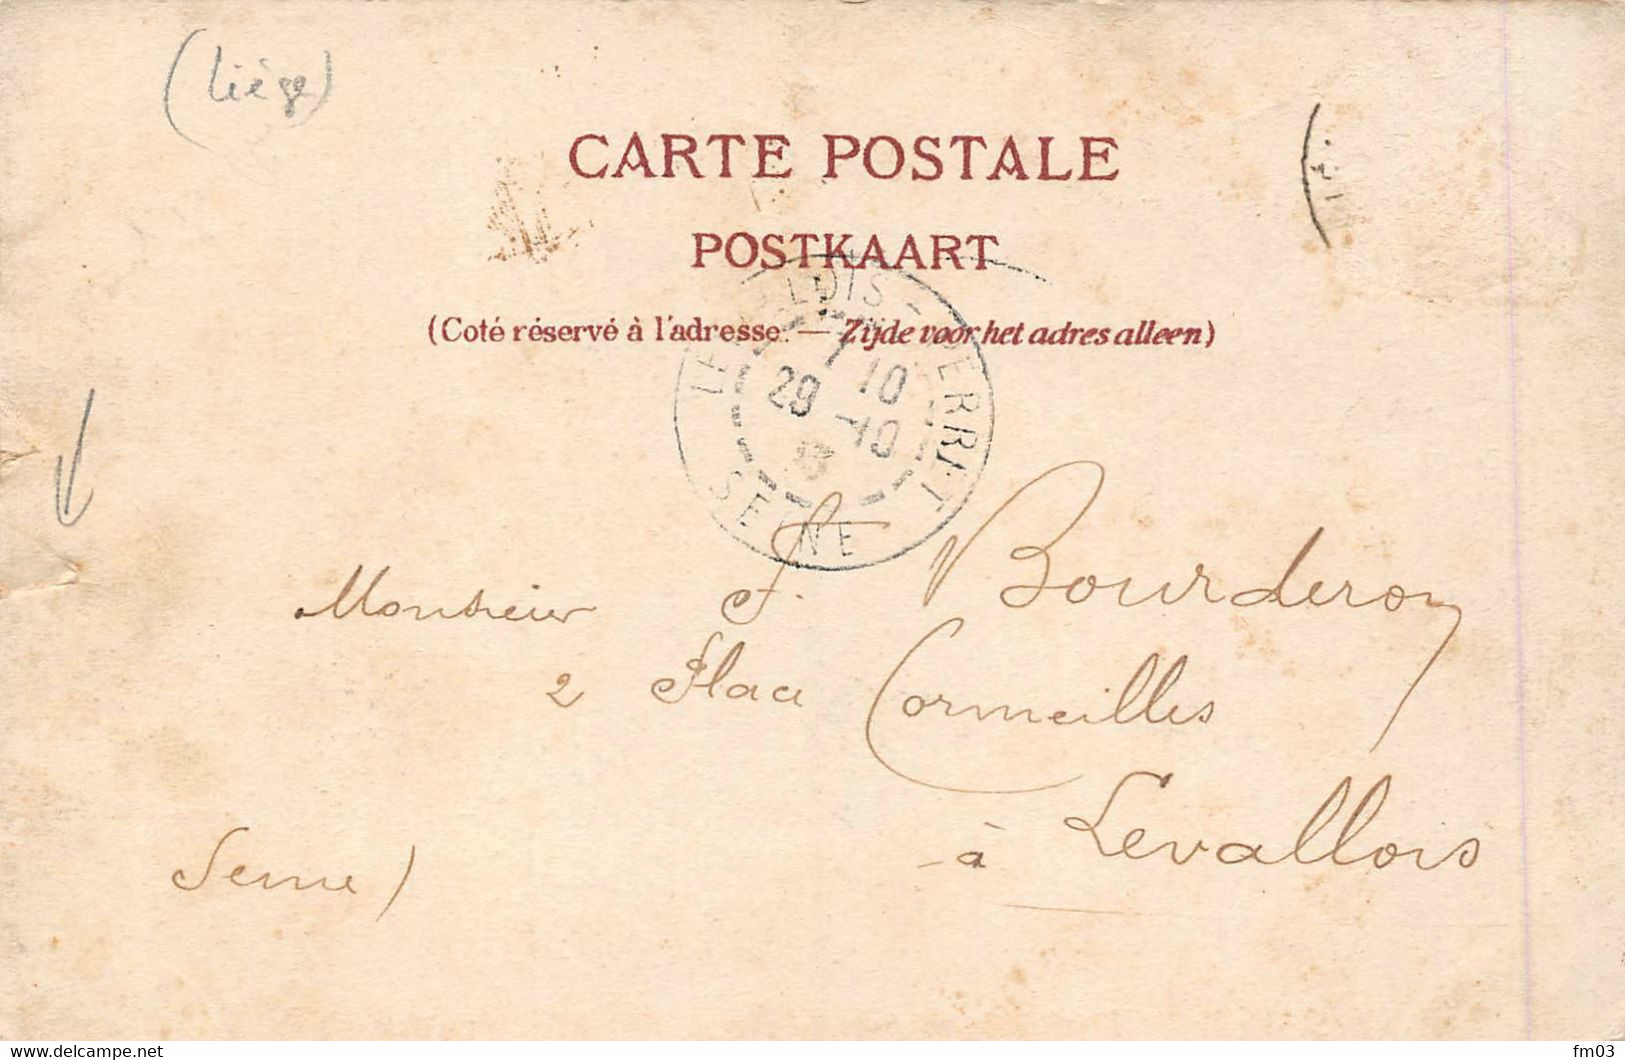 (Liége)
CARTE POSTALE
POSTKAART
(Coté réservé à l'adresse. — Zijde voor het adres alleen)
LEVALLOIS-PERRET
10
29 -10
SEINE
Monsieur F. Bourderon
2 Place Cormeilles
à Levallois
Seine)
www.delcampe.net
fm03